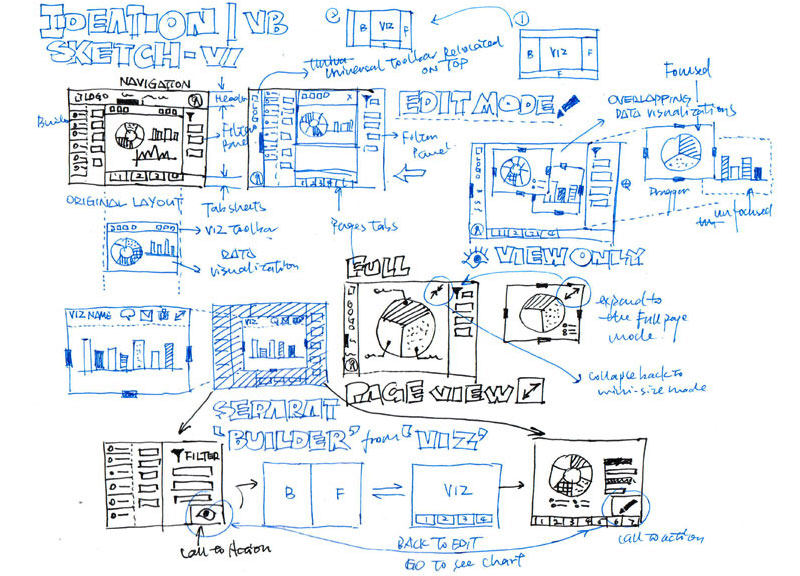 IDEATION | VB
SKETCH-V1
2
B VIZ F
1
B VIZ F
F
Universal Toolbar Relocated
on TOP
NAVIGATION
LOGO
Header
Filter
Panel
ORIGINAL LAYOUT
1 2 3 4
Tabsheets
VIZ Toolbar
DATA
visualization
Filter
Panel
Pages tabs
EDIT MODE
Focused
OVERLAPPING
DATA visualizations
Dragger
unfocused
1 2 3 4
VIEW ONLY
FULL
PAGE VIEW
expand to
the Full page
mode.
collapse back to
mini-size mode
VIZ NAME
VIZ
SEPARAT
'BUILDER' from 'VIZ'
FILTER
B F
VIZ
1 2 3 4
1 2 3 4 5 6 7
call to Action
BACK TO EDIT
GO to see chart
call to action